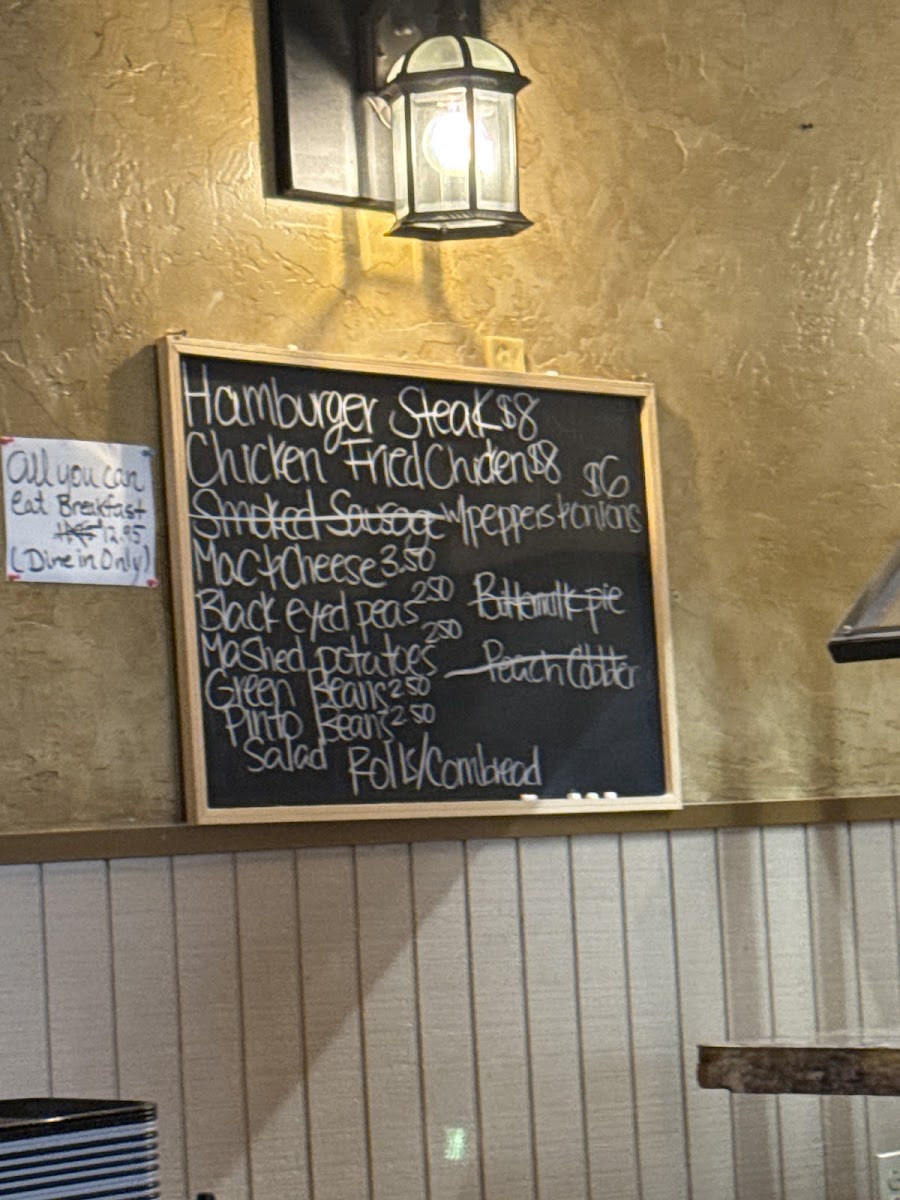 Hamburger Steak $8
Chicken Fried Chicken $8
$6
Smoked Sausage w/peppers + onions
Mac + Cheese 3.50
Black eyed peas 2.50
Buttermilk pie
Mashed potatoes 2.50
Peach Cobbler
Green Beans 2.50
Pinto Beans 2.50
Salad
Rolls/Cornbread
All you can
Eat Breakfast
12.95
(Dine in Only)